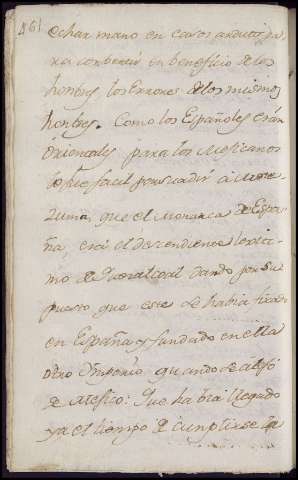 461
echar mano en casos arduos pa-
ra convertir en beneficio de los
hombres los Errores de los mismos
hombres. Como los Españoles eran
Orientales para los Mexicanos
le fue facil persuadir á Mote
zuma, que el Monarca de Espa-
ña, era el descendiente lexiti-
mo de Quezalcoal dando por su
puesto que este se habia fixado
en España y fundado en ella
otro Imperio quando se alejó
de Mexico: Que habia llegado
ya el tiempo de cumplirse la